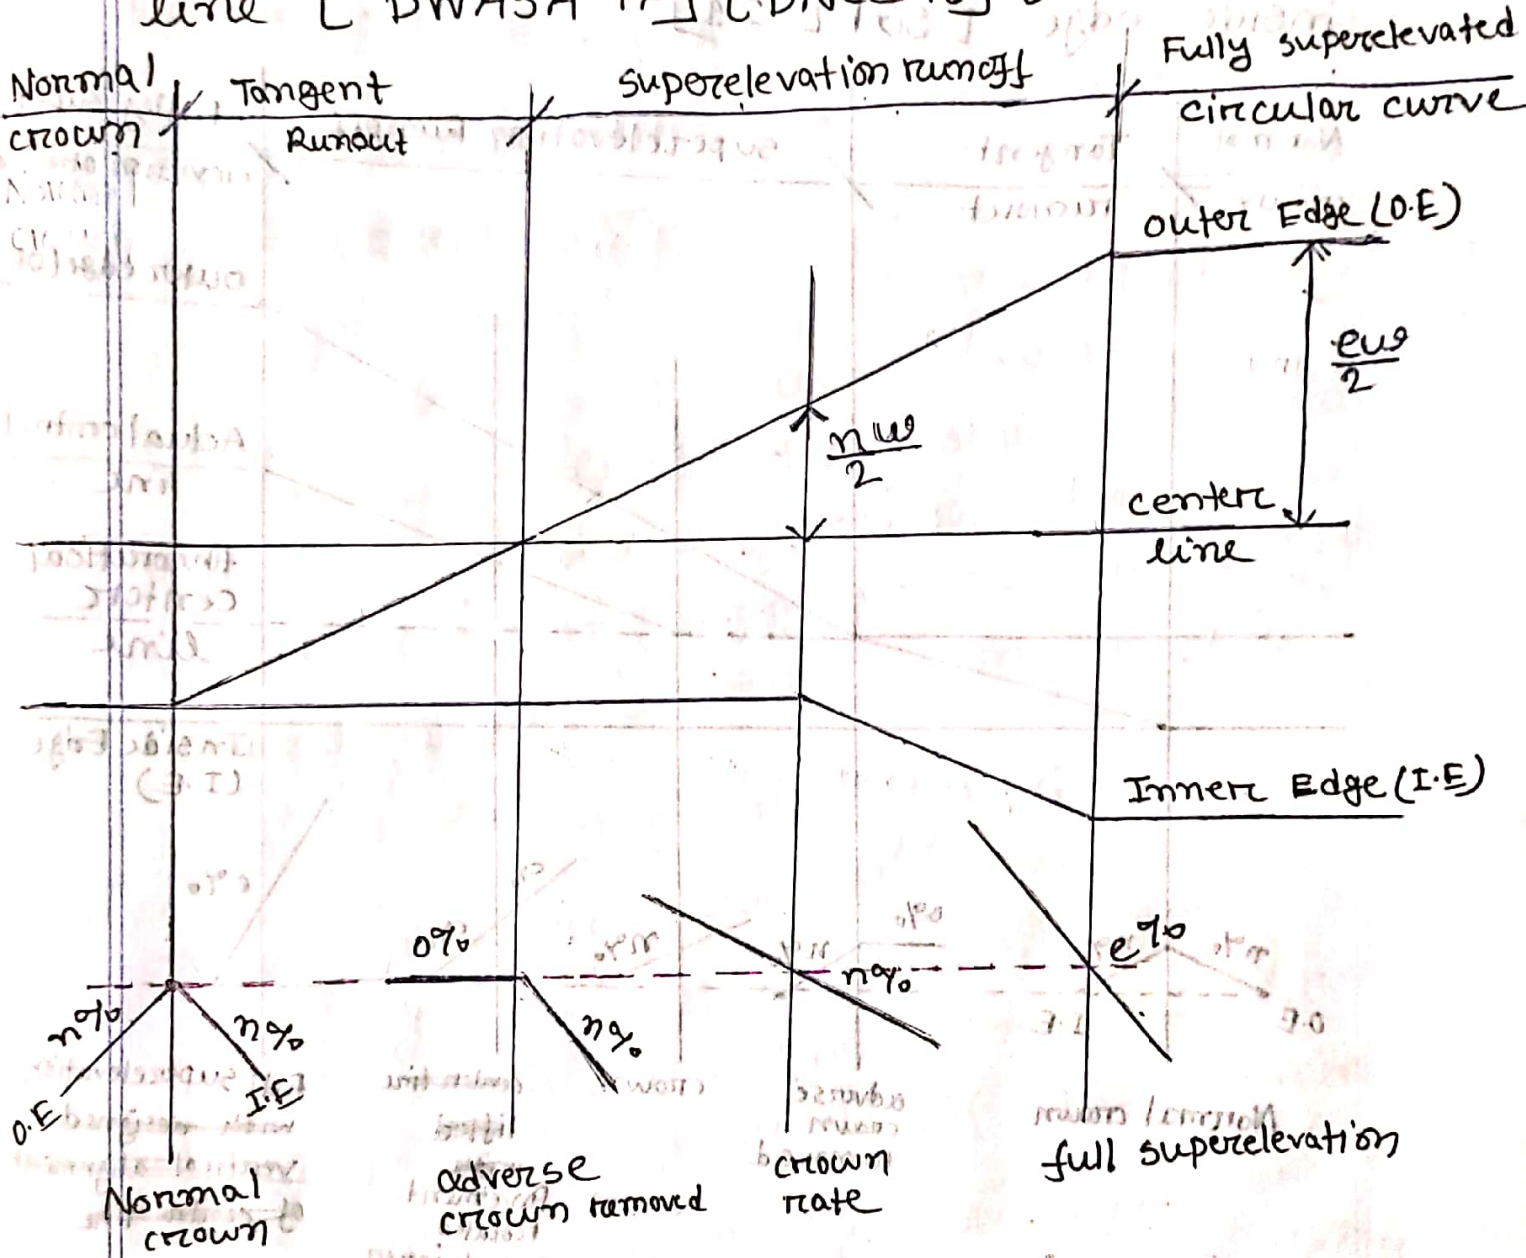 line [ DWASA
Normal
crown
Tangent
Runout
superelevation runoff
Fully superelevated
circular curve
outer Edge (O.E)
ew
2
nw
2
center
line
Inner Edge (I.E)
n%
n%
O.E
I.E
0%
n%
n%
e%
Normal
crown
adverse
crown removed
crown
rate
full superelevation